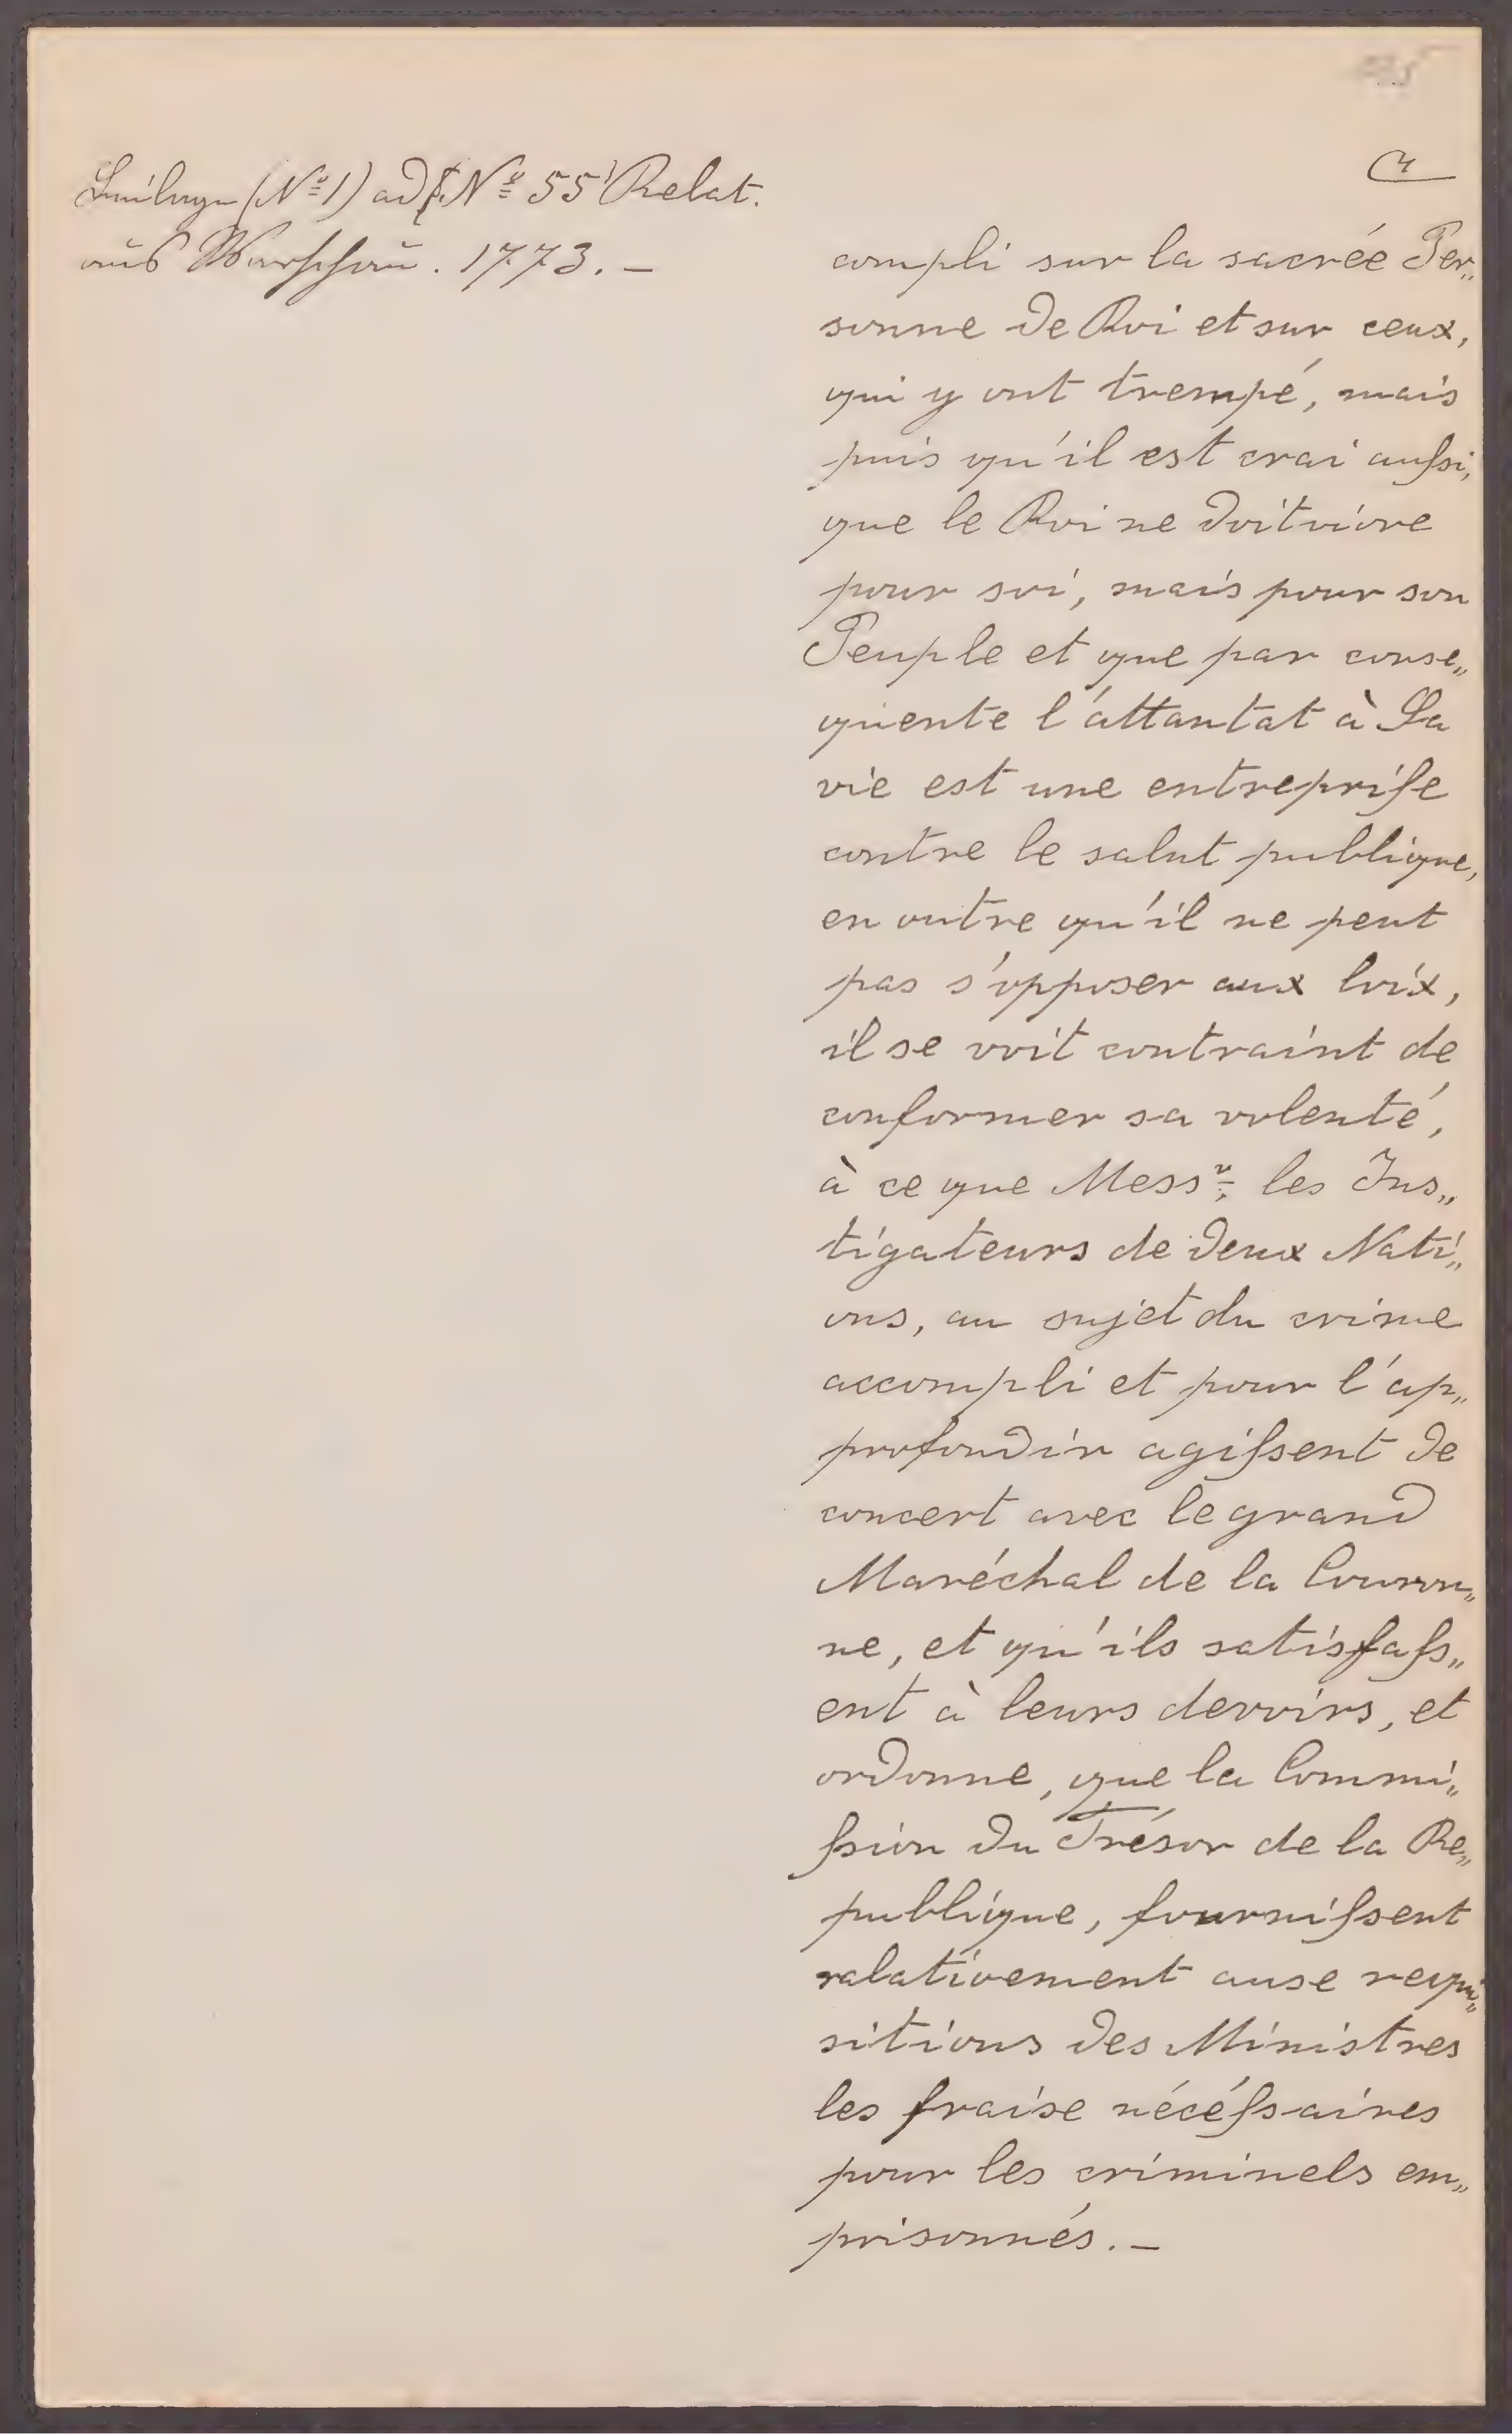 Beilage (Nº 1) ad Nº 55 Relat.
aus Warschau. 1773. –
compli sur la sacrée Per„
sonne de Roi et sur ceux,
qui y ont trempé, mais
puis qu'il est vrai aussi,
que le Roi ne doit vivre
pour soi, mais pour son
Peuple et que par conse„
quente l'attantat à Sa
vie est une entreprise
contre le salut publique,
en outre qu'il ne peut
pas s'opposer aux loix,
il se voit contraint de
conformer sa volenté,
à ce que Messrs les Ins„
tigateurs de deux Nati„
ons, au sujet du crime
accompli et pour l'ap„
profondir agissent de
concert avec le grand
Maréchal de la Couron„
ne, et qu'ils satisfass„
ent à leurs devoirs, et
ordonne, que la Commi„
ssion du Trésor de la Re„
publique, fournissent
ralativement ause requi„
sitions des Ministres
les fraise nécéssaires
pour les criminels em„
prisonnés. –